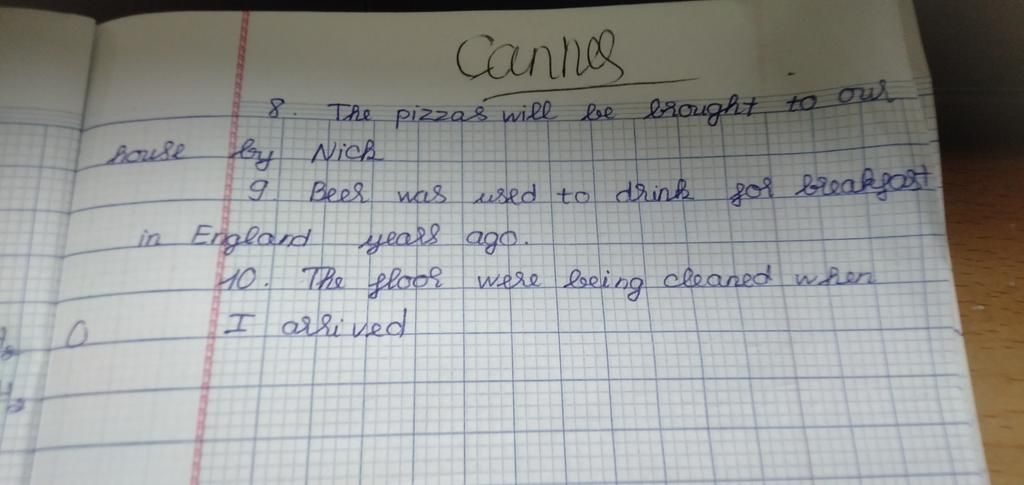 Cannes
8. The pizzas will be brought to our
house by Nick
9. Beer was used to drink for breakfast
in England years ago.
10. The floor were being cleaned when
I arrived